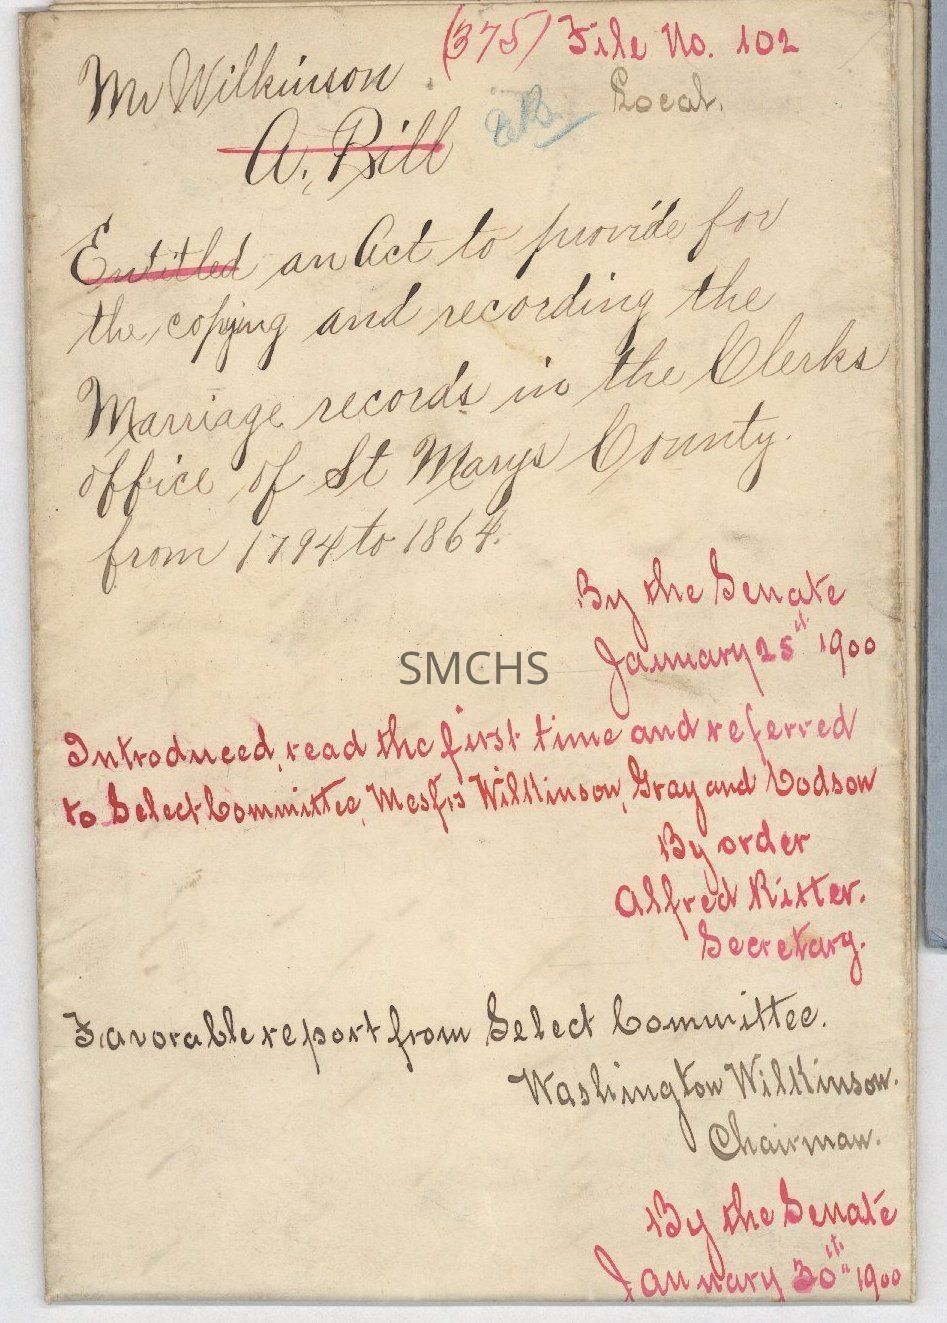 (375) File No. 102
Mr Wilkinson
Local.
A. Bill
Entitled an Act to provide for
the copying and recording the
Marriage records in the Clerks
office of St Marys County.
from 1794 to 1864.
By the Senate
January 25" 1900
SMCHS
Introduced, read the first time and referred
to Select Committee, Messrs Wilkinson, Gray and Dodson
By order
Alfred Ritter.
Secretary.
Favorable report from Select Committee.
Washington Wilkinson.
Chairman.
By the Senate
January 30" 1900